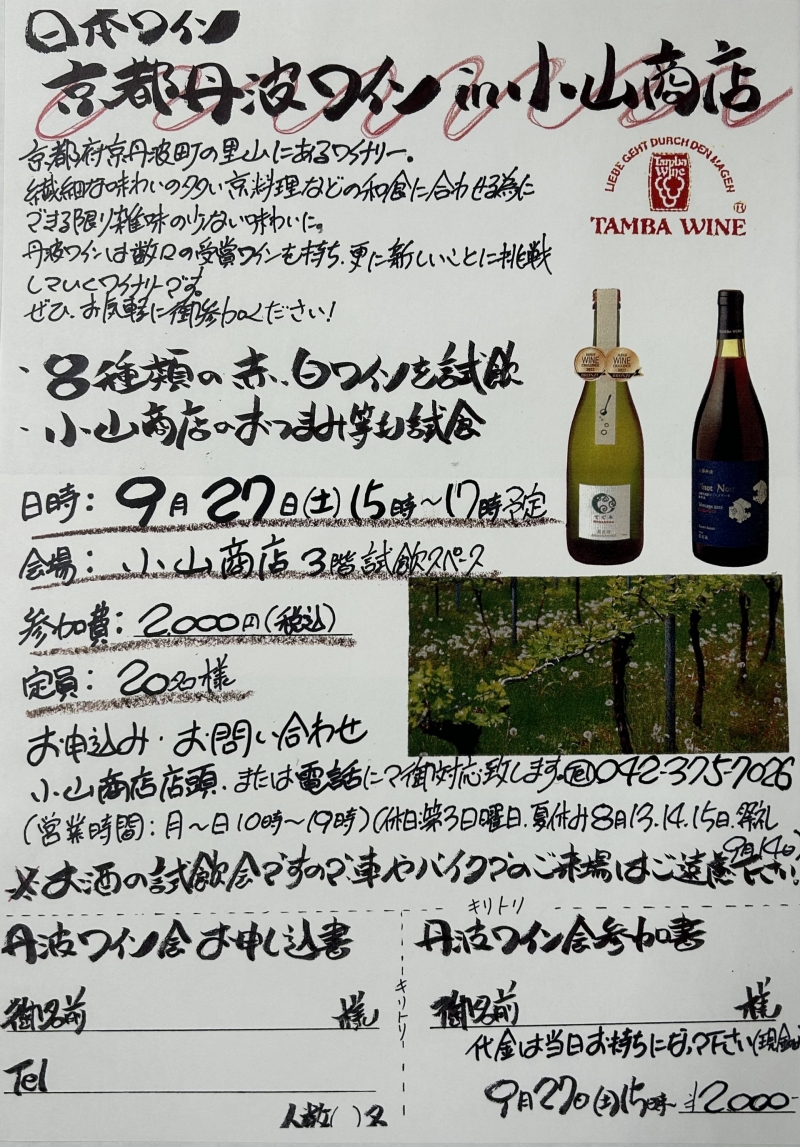 日本ワイン
京都丹波ワイン in 小山商店
京都府京丹波町の里山にあるワイナリー。
繊細な味わいの多い京料理などの和食に合わせる為に
できる限り雑味の少ない味わいに。
丹波ワインは数々の受賞ワインを持ち、更に新しいことに挑戦
していくワイナリーです。
ぜひ、お気軽に御参加ください！
LIEBE GEHT DURCH DEN MAGEN
Tamba
Wine
TAMBA WINE
・8種類の赤、白ワインを試飲
・小山商店のおつまみ等も試食
WINE
WINE
日時：9月27日(土)15時〜17時予定
会場：小山商店3階試飲スペース
参加費：2000円(税込)
定員：20名様
Pinot Noir
お申込み・お問い合わせ
小山商店店頭、または電話にて御対応致します。Tel 042-375-7026
(営業時間：月〜日10時〜19時)(休日:第3日曜日、夏休み8月13.14.15日、祭礼
9月14日)
※お酒の試飲会ですので、車やバイクでのご来場はご遠慮下さい！
キリトリ
丹波ワイン会お申し込書
御名前 様
Tel
人数( )名
キリトリ
丹波ワイン会参加書
御名前 様
代金は当日お持ちになって下さい(現金
9月27日(土)15時〜 ¥2000-